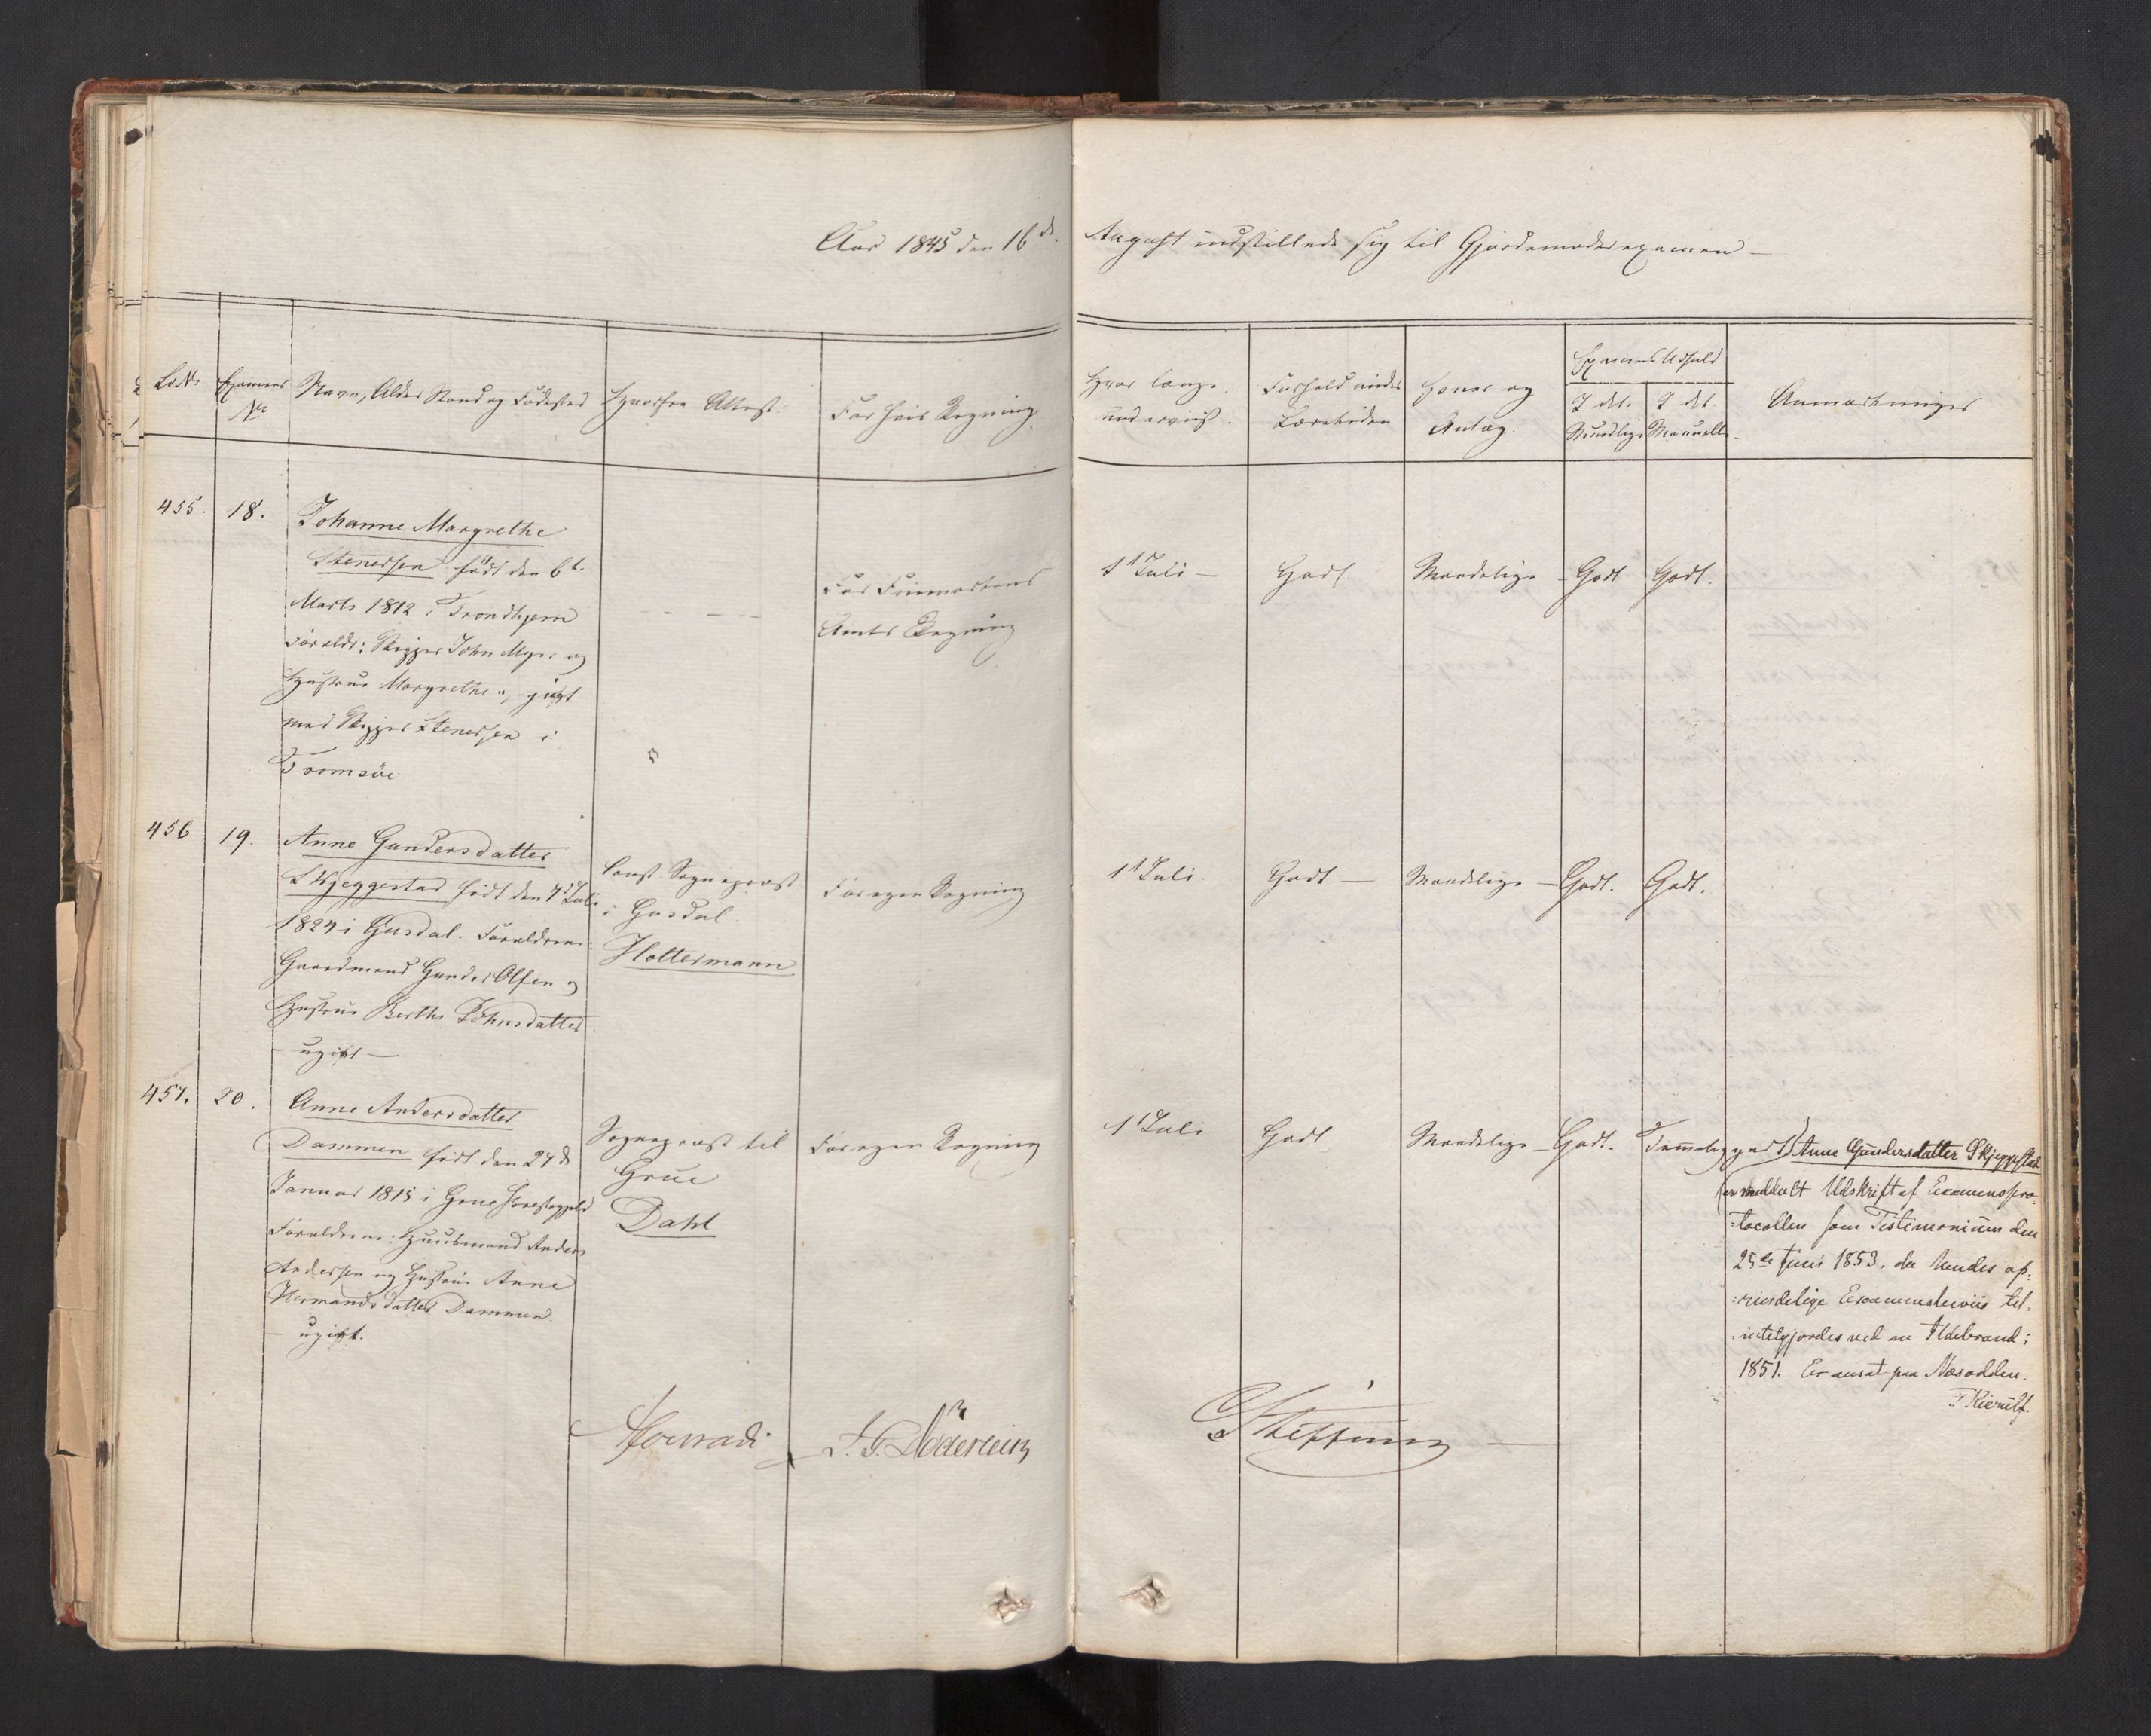 Aar 1845 den 16de August indstillede sig til Gjordemoderexamen
LbNr
Examens
Nr
Navn, Alder Stand og Fødested
Hvorfra Attest.
For hvis Regning.
Hvor længe
underviist.
Forhold under
Læretiden
Evner og
Anlæg.
Examens Udfald
I det
Mundlige
I det
Manuelle
Anmærkninger
455. 18. Johanne Margrethe
Stenersen født den 6t.
Marts 1812 i Trondhjem
Forældr: Skipper John Myer og
Hustrue Margrethe, gift
med Skipper Stenersen i
Tromsöe
For Finmarkens
Amts Regning
1 Juli — Godt Maadelige Godt Godt.
456 19. Anne Gundersdatter
Skjeggestad født den 4 Juli
1824 i Gusdal. Forældrene:
Gaardmand Gunder Olsen og
Hustrue Berthe Johnsdatter
ugift —
Const. Sognepræst
i Gusdal
Holtermann
For egen Regning
1 Juli. Godt — Maadelige — Godt. Godt.
457. 20. Anne Andersdatter
Dammen født den 24d
Januar 1815 i Grue Præstegjeld
Forældrene: Huusmand Anders
Andersen og Hustrue Anne
Hermandsdatter Dammen
ugift.
Sognepræst til
Grue
Dahl
For egen Regning
1 Juli Godt Maadelige Godt. Temmelig godt
Anne Gundersdatter Skjeggestad
er meddeelt Udskrift af Examenspro-
tocollen som Testimonium den
25de Juni 1853, da hendes op:
:rindelige Examensbeviis til-
:intetgjordes ved en Ildebrand i
1851. Er ansat paa Næsodden.
T Kierulf.
Conradi
Steffens